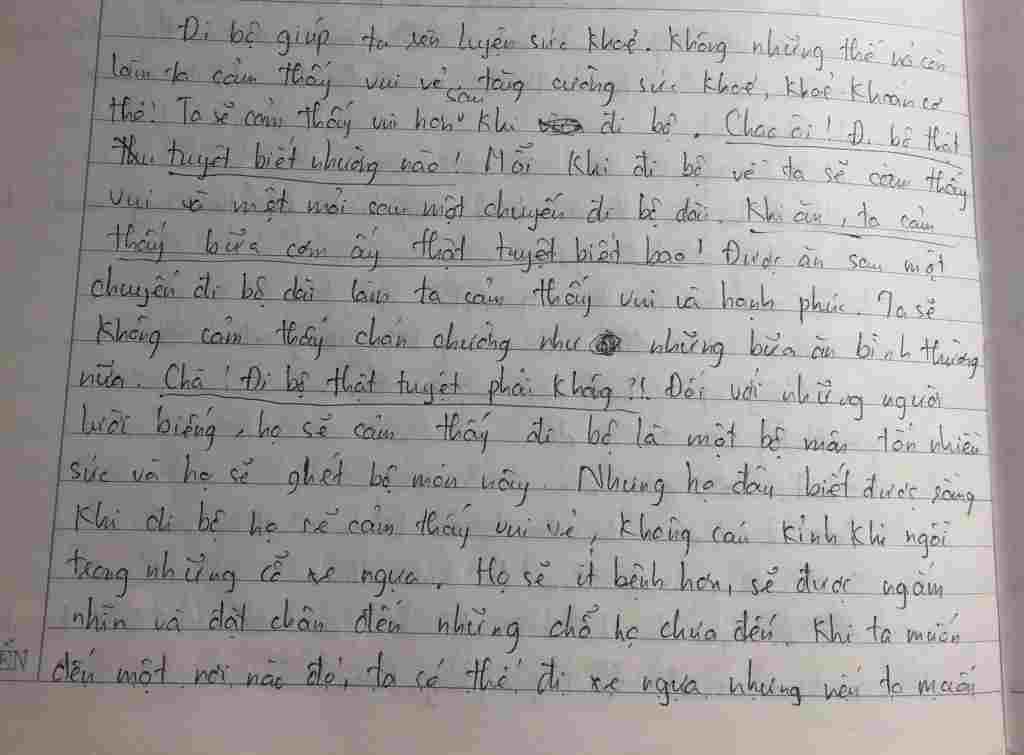 Đi bộ giúp ta rèn luyện sức khoẻ. Không những thế nó còn
làm ta cảm thấy vui vẻ, tăng cường sức khoẻ, khoẻ khoắn cơ
thể! Ta sẽ cảm thấy vui hơn sau khi đi bộ. Chao ôi! Đi bộ thật
tuyệt biết nhường nào! Mỗi khi đi bộ về ta sẽ cảm thấy
vui và mệt mỏi sau một chuyến đi bộ dài. Khi ăn, ta cảm
thấy bữa cơm ấy thật tuyệt biết bao! Được ăn sau một
chuyến đi bộ dài làm ta cảm thấy vui và hạnh phúc. Ta sẽ
không cảm thấy chán chường như những bữa ăn bình thường
nữa. Chà! Đi bộ thật tuyệt phải không?! Đối với những người
lười biếng, họ sẽ cảm thấy đi bộ là một bộ môn tốn nhiều
sức và họ sẽ ghét bộ môn này. Nhưng họ đâu biết được rằng
khi đi bộ họ sẽ cảm thấy vui vẻ, không cáu kỉnh khi ngồi
trong những cỗ xe ngựa. Họ sẽ ít bệnh hơn, sẽ được ngắm
nhìn và đặt chân đến những chỗ họ chưa đến. Khi ta muốn
đến một nơi nào đó, ta có thể đi xe ngựa nhưng nếu ta muốn